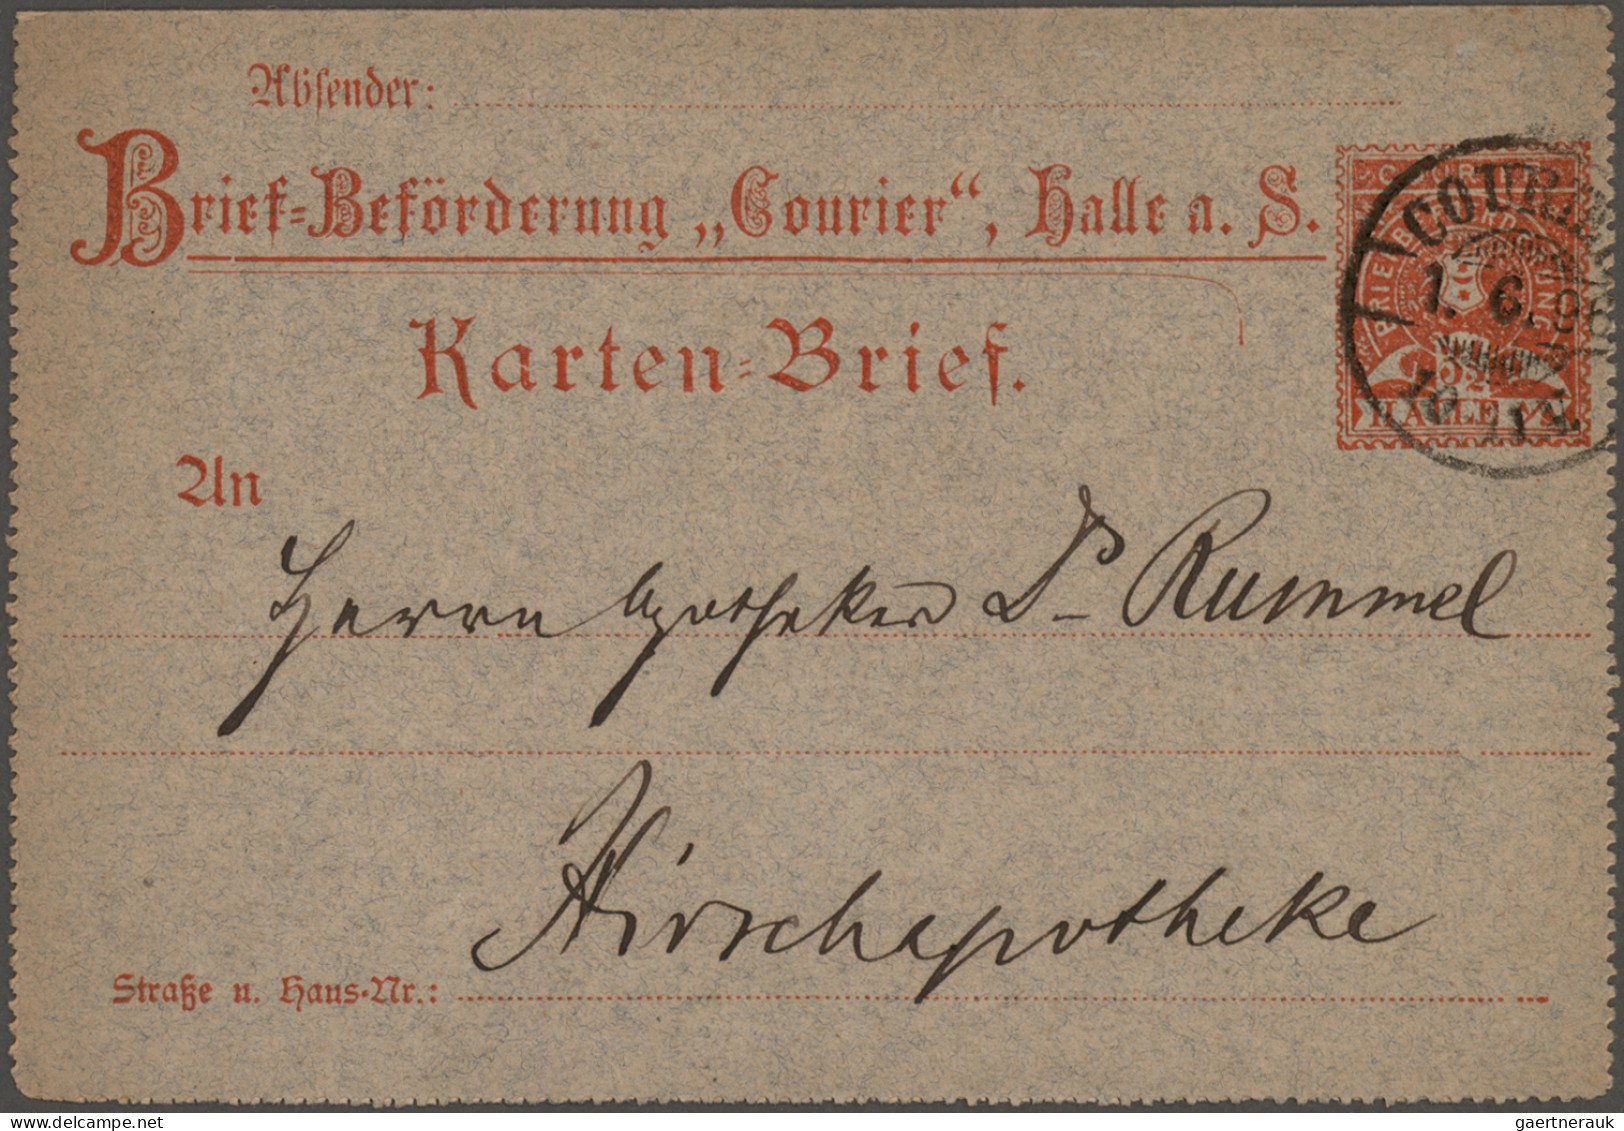 Absender:
Brief-Beförderung „Courier“, Halle a. S.
Karten-Brief.
COURIER
1. 6. 9
10
HALLE
3½
An
Herrn Apotheker Dr Rummel
Hirschapotheke
Straße u. Haus-Nr.:
gaertnerauk